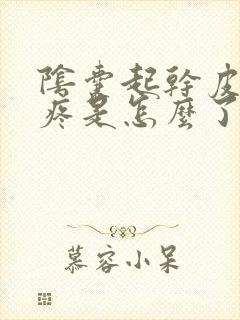 陰囊起幹皮
疼是怎麼了
慕容小呆